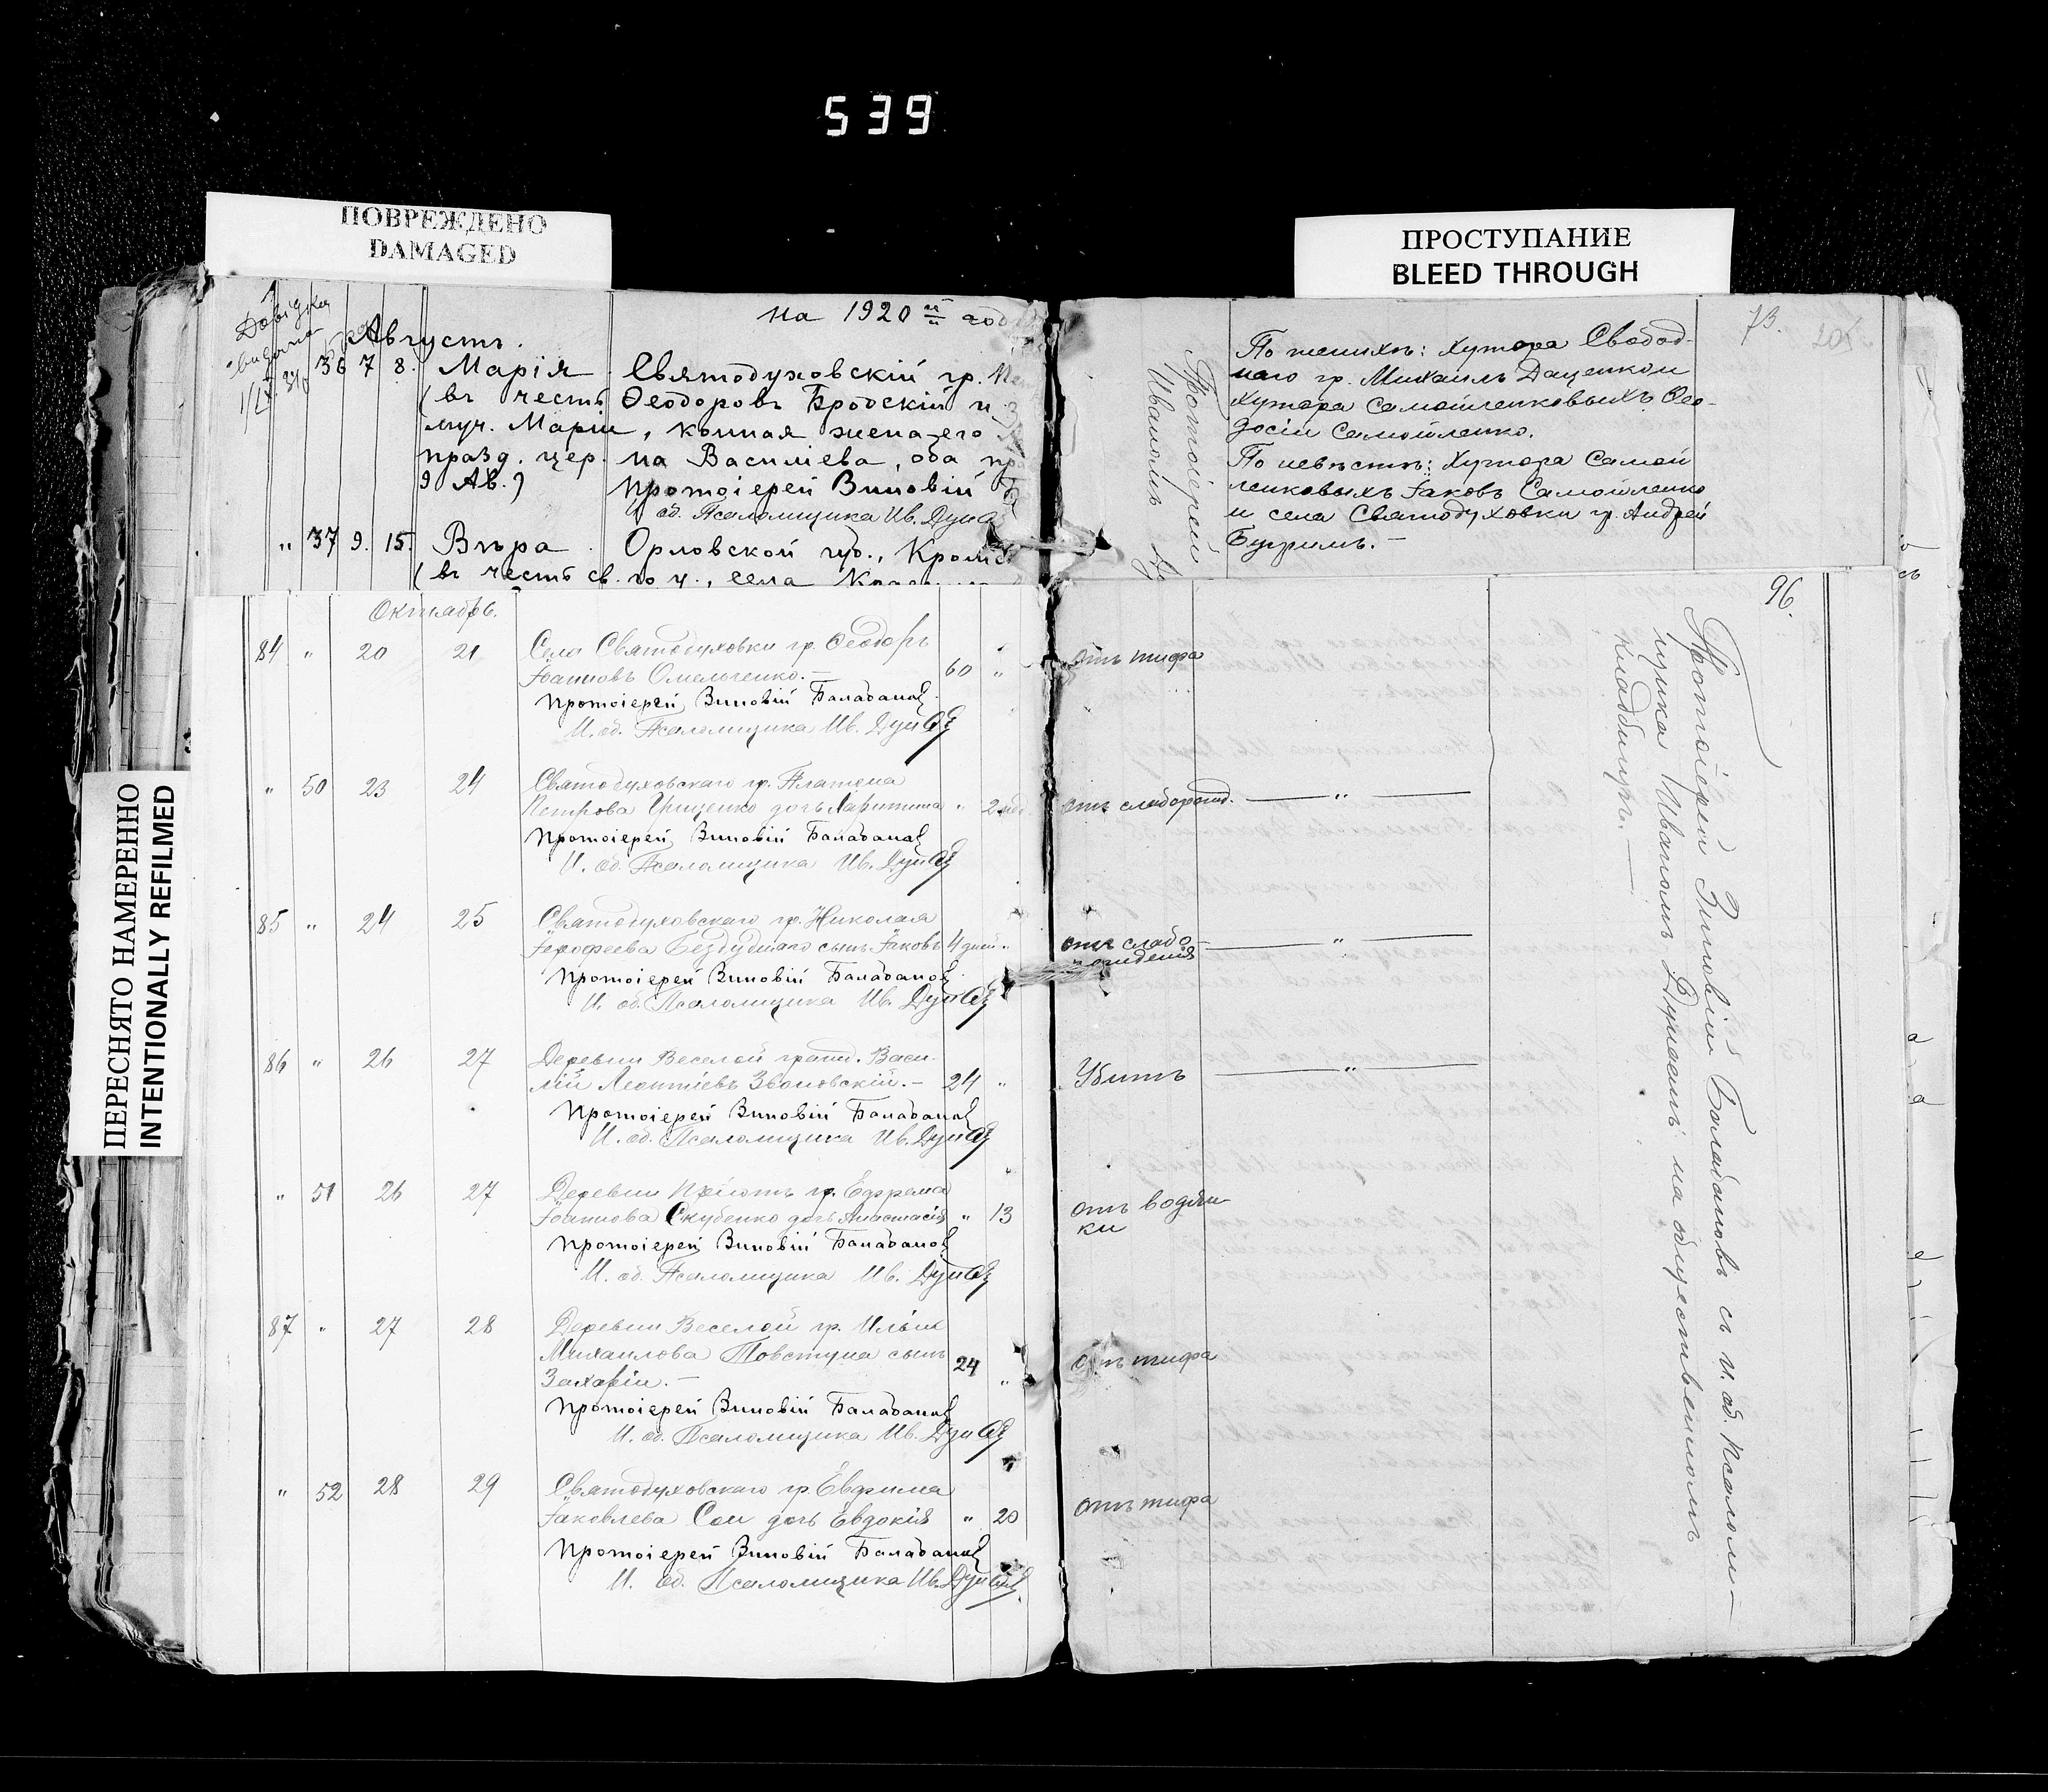 539
ПОВРЕЖДЕНО
DAMAGED
ПРОСТУПАНИЕ
BLEED THROUGH
ПЕРЕСНЯТО НАМЕРЕННО
INTENTIONALLY REFILMED
на 1920 й год
Августъ.
36 7 8. Марія Святодуховскій гр.
(въ честь Ѳеодоровъ Бродскій и
муч. Маріи, конная жена его
празд. цер. на Василіева, оба пр
9 Ав.) Протоіерей Зиновій
И об. Псаломщика Ив. Дунаев
" 37 9. 15. Вѣра Орловской губ., Кромс
(въ честь св. м. ч., села
73.
По женихѣ: хутора Свобод-
наго гр. Михаилъ Даценко и
хутора Самойленковыхъ Ѳео-
досій Самойленко.
По невѣстѣ: хутора Самой
ленковыхъ Іаковъ Самойленко
и села Святодуховки гр. Андрей
Бугримъ.-
Протоіерей
Иваномъ
Октябрь.
84 " 20 21 Села Святодуховки гр. Ѳеодоръ
Іоанновъ Омельченко.- 60 " отъ тифа
Протоіерей Зиновій Балабановъ
И. об. Псаломщика Ив. Дунаев
" 50 23 24 Святодуховскаго гр. Платона
Петрова Грищенко дочь Харитина " 2 нед. отъ слаборожд. — " —
Протоіерей Зиновій Балабановъ
И. об. Псаломщика Ив. Дунаев
85 " 24 25 Святодуховскаго гр. Николая
Іерофеева Бездуднаго сынъ Іаковъ 4 дней " отъ слабо- — " —
рожденія
Протоіерей Зиновій Балабановъ
И. об. Псаломщика Ив. Дунаев
86 " 26 27 Деревни Веселой гражд. Васи-
лій Леонтіевъ Звоновскій.- 24 " Убитъ — " —
Протоіерей Зиновій Балабановъ
И. об. Псаломщика Ив. Дунаев
" 51 26 27 Деревни Пріютъ гр. Ефрема
Іоаннова Скубенко дочь Анастасія " 13 отъ водян-
ки
Протоіерей Зиновій Балабановъ
И. об. Псаломщика Ив. Дунаев
87 " 27 28 Деревни Веселой гр. Ильи
Михаилова Товстуна сынъ 24 " отъ тифа
Захарій.-
Протоіерей Зиновій Балабановъ
И. об. Псаломщика Ив. Дунаев
" 52 28 29 Святодуховскаго гр. Евфима
Іаковлева Сои дочь Евдокія " 20 отъ тифа
Протоіерей Зиновій Балабановъ
И. об. Псаломщика Ив. Дунаев
96.
Протоіерей Зиновій Балабановъ съ и. об. псалом-
щика Иваномъ Дунаевымъ на общественномъ
кладбищѣ.-